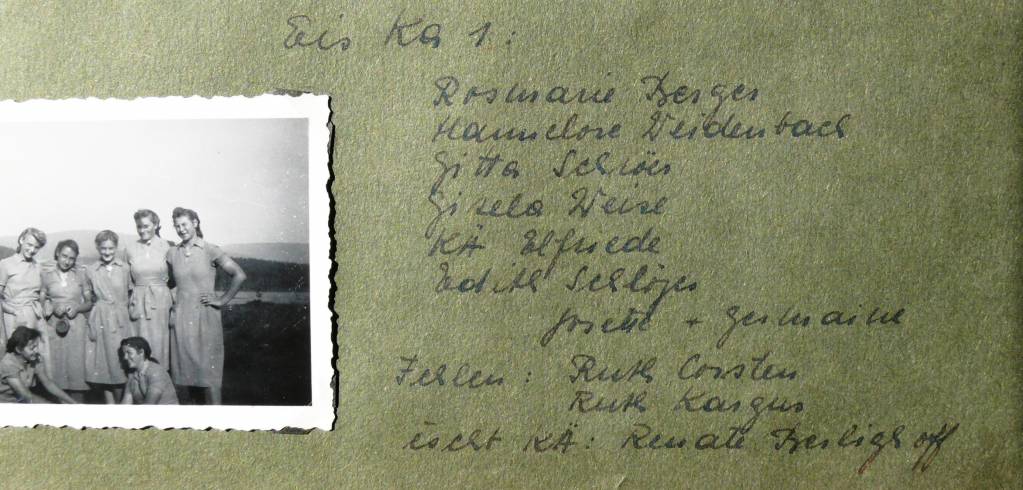 Eis Ka 1:
Rosmarie Berger
Hannelore Weidenbach
Gitta
Gisela Weise
KÄ Elfriede
Edith Schlöjer
Josette + Germaine
Fehlen: Ruth Corsten
Ruth Kargus
KÄ: Renate